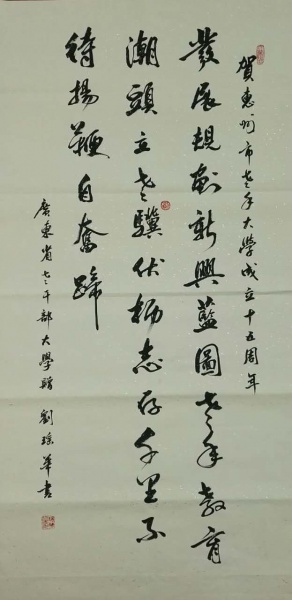 賀惠州市老年大學成立十五周年
發展規劃新興藍圖老年教育
潮頭立老驥伏櫪志存千里不
待揚鞭自奮蹄
廣東省老干部大學贈 劉瑤華書